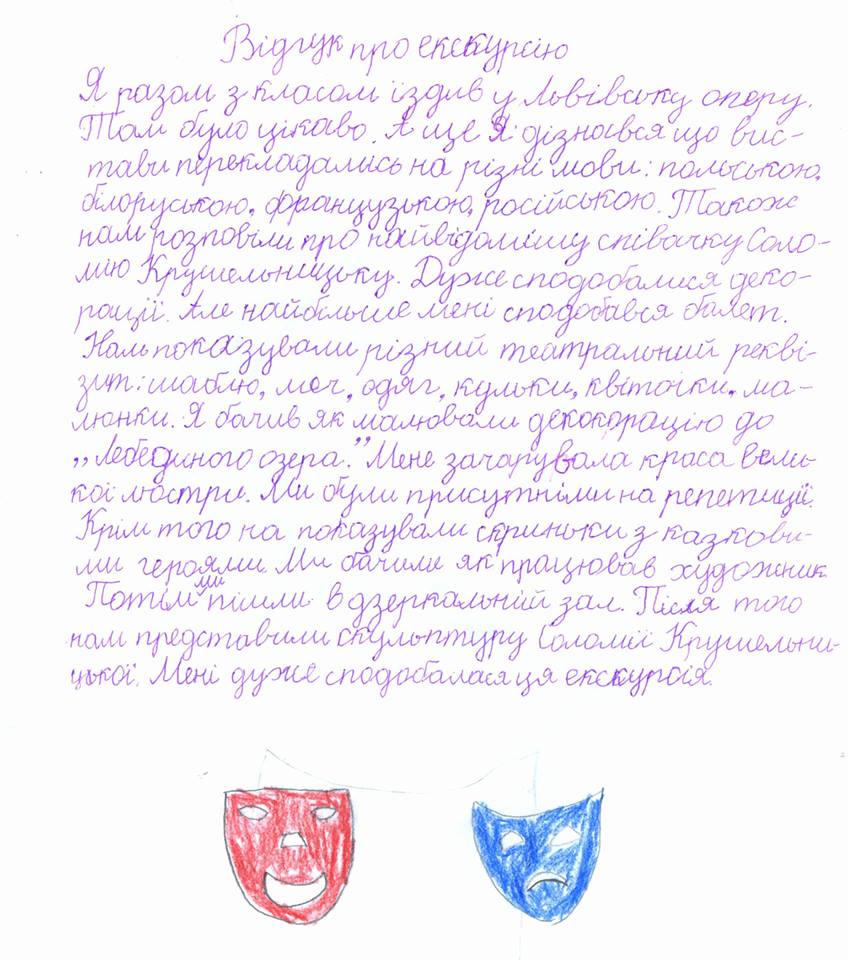 Відгук про екскурсію
Я разом з класом їздив у Львівську оперу.
Там було цікаво. А ще я дізнався що вис-
тави перекладались на різні мови: польською,
білоруською, французькою, російською. Також
нам розповіли про найвідомішу співачку Соло-
мію Крушельницьку. Дуже сподобалися деко-
рації. Але найбільше мені сподобався балет.
Нам показували різний театральний рекві-
зит: шаблю, меч, одяг, кульки, квіточки, ма-
люнки. Я бачив як малювали декокорацію до
„Лебединого озера." Мене зачарувала краса вели-
кої люстри. Ми були присутніми на репетиції.
Крім того на показували скриньки з казкови-
ми героями. Ми бачили як працював художник.
Потім ми пішли в дзеркальній зал. Після того
нам представили скульптуру Соломії Крушельни-
цької. Мені дуже сподобалася ця екскурсія.